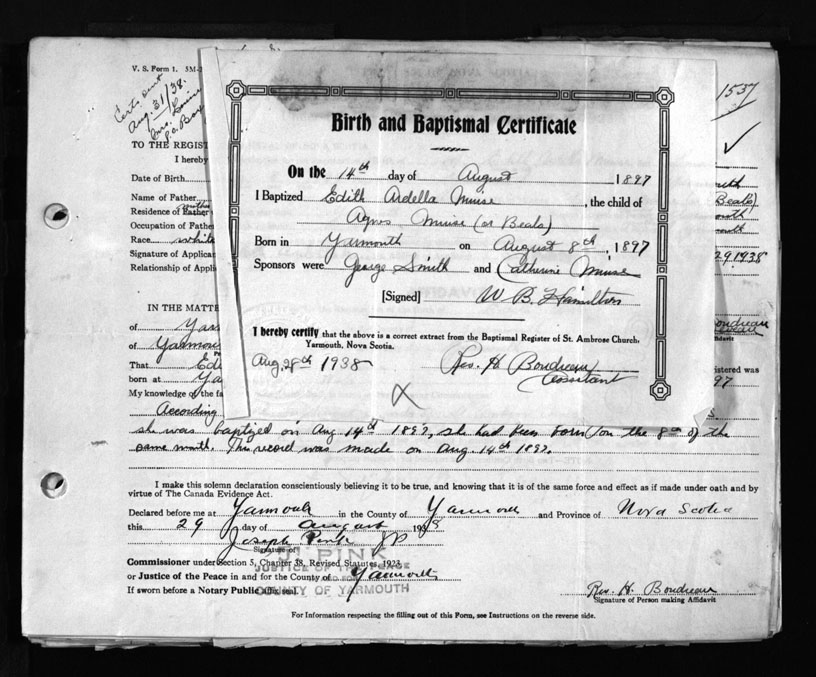 V. S. Form 1. 5M-
Cert. sent
Aug. 31/38.
P.O. Box
1537
TO THE REGIST
I hereby
Date of Birth
Name of Father
mother
Residence of Father
Occupation of Father
Race white
Signature of Applican
Relationship of Appli
Smith
Beals)
29 1938
Birth and Baptismal Certificate
On the 14th day of August 1897
I Baptized Edith Ardella Muise, the child of
Agnes Muise (or Beals)
Born in Yarmouth on August 8th, 1897
Sponsors were George Smith and Catherine Muise
[Signed] W B Hamilton
I hereby certify that the above is a correct extract from the Baptismal Register of St. Ambrose Church,
Yarmouth, Nova Scotia.
Aug. 28th 1938 Rev. H Boudreau
Assistant
IN THE MATTE
of Yar
of Yarmou
That Edi
born at Ya
My knowledge of the fa
According
Boudreau
ffidavit
gistered was
97
she was baptized on Aug 14th 1897, she had been born on the 8th of the
same month. This record was made on Aug. 14th 1897.
I make this solemn declaration conscientiously believing it to be true, and knowing that it is of the same force and effect as if made under oath and by
virtue of The Canada Evidence Act.
Declared before me at Yarmouth in the County of Yarmouth and Province of Nova Scotia
this 29 day of August 1938
Joseph Pink JP
Signature of
J. PINK
JUSTICE OF THE PEACE
COUNTY OF YARMOUTH
Commissioner under Section 5, Chapter 38, Revised Statutes, 1923
or Justice of the Peace in and for the County of Yarmouth
If sworn before a Notary Public affix seal.
Rev. H. Boudreau
Signature of Person making Affidavit
For Information respecting the filling out of this Form, see Instructions on the reverse side.